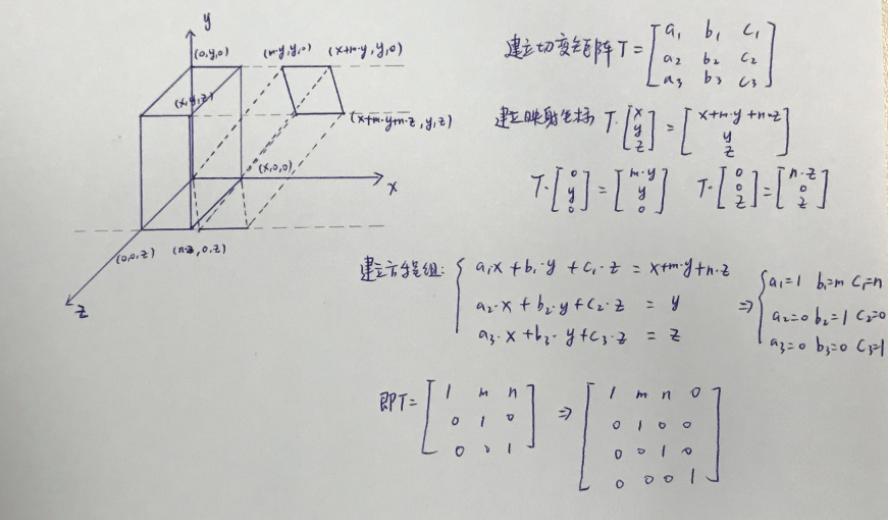 y
(0,y,0) (m·y,y,0) (x+m·y,y,0)
(x,y,z)
(x+m·y+n·z,y,z)
(x,0,0)
x
(0,0,z) (n·z,0,z)
z
建立切变矩阵 T = [a₁ b₁ c₁
a₂ b₂ c₂
a₃ b₃ c₃]
建立映射坐标 T·[x y z] = [x+m·y+n·z y z]
T·[0 y 0] = [m·y y 0] T·[0 0 z] = [n·z 0 z]
建立方程组: { a₁x + b₁·y + c₁·z = x+m·y+n·z
a₂·x + b₂·y + c₂·z = y
a₃·x + b₃·y + c₃·z = z
⇒ { a₁=1 b₁=m c₁=n
a₂=0 b₂=1 c₂=0
a₃=0 b₃=0 c₃=1
即T= [1 m n
0 1 0
0 0 1]
⇒ [1 m n 0
0 1 0 0
0 0 1 0
0 0 0 1]